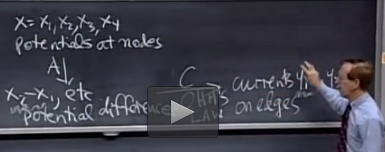 x = x₁, x₂, x₃, x₄
potentials at nodes
A
x₂-x₁, etc
potential difference
C
OHM'S
LAW
currents y₁
on edges